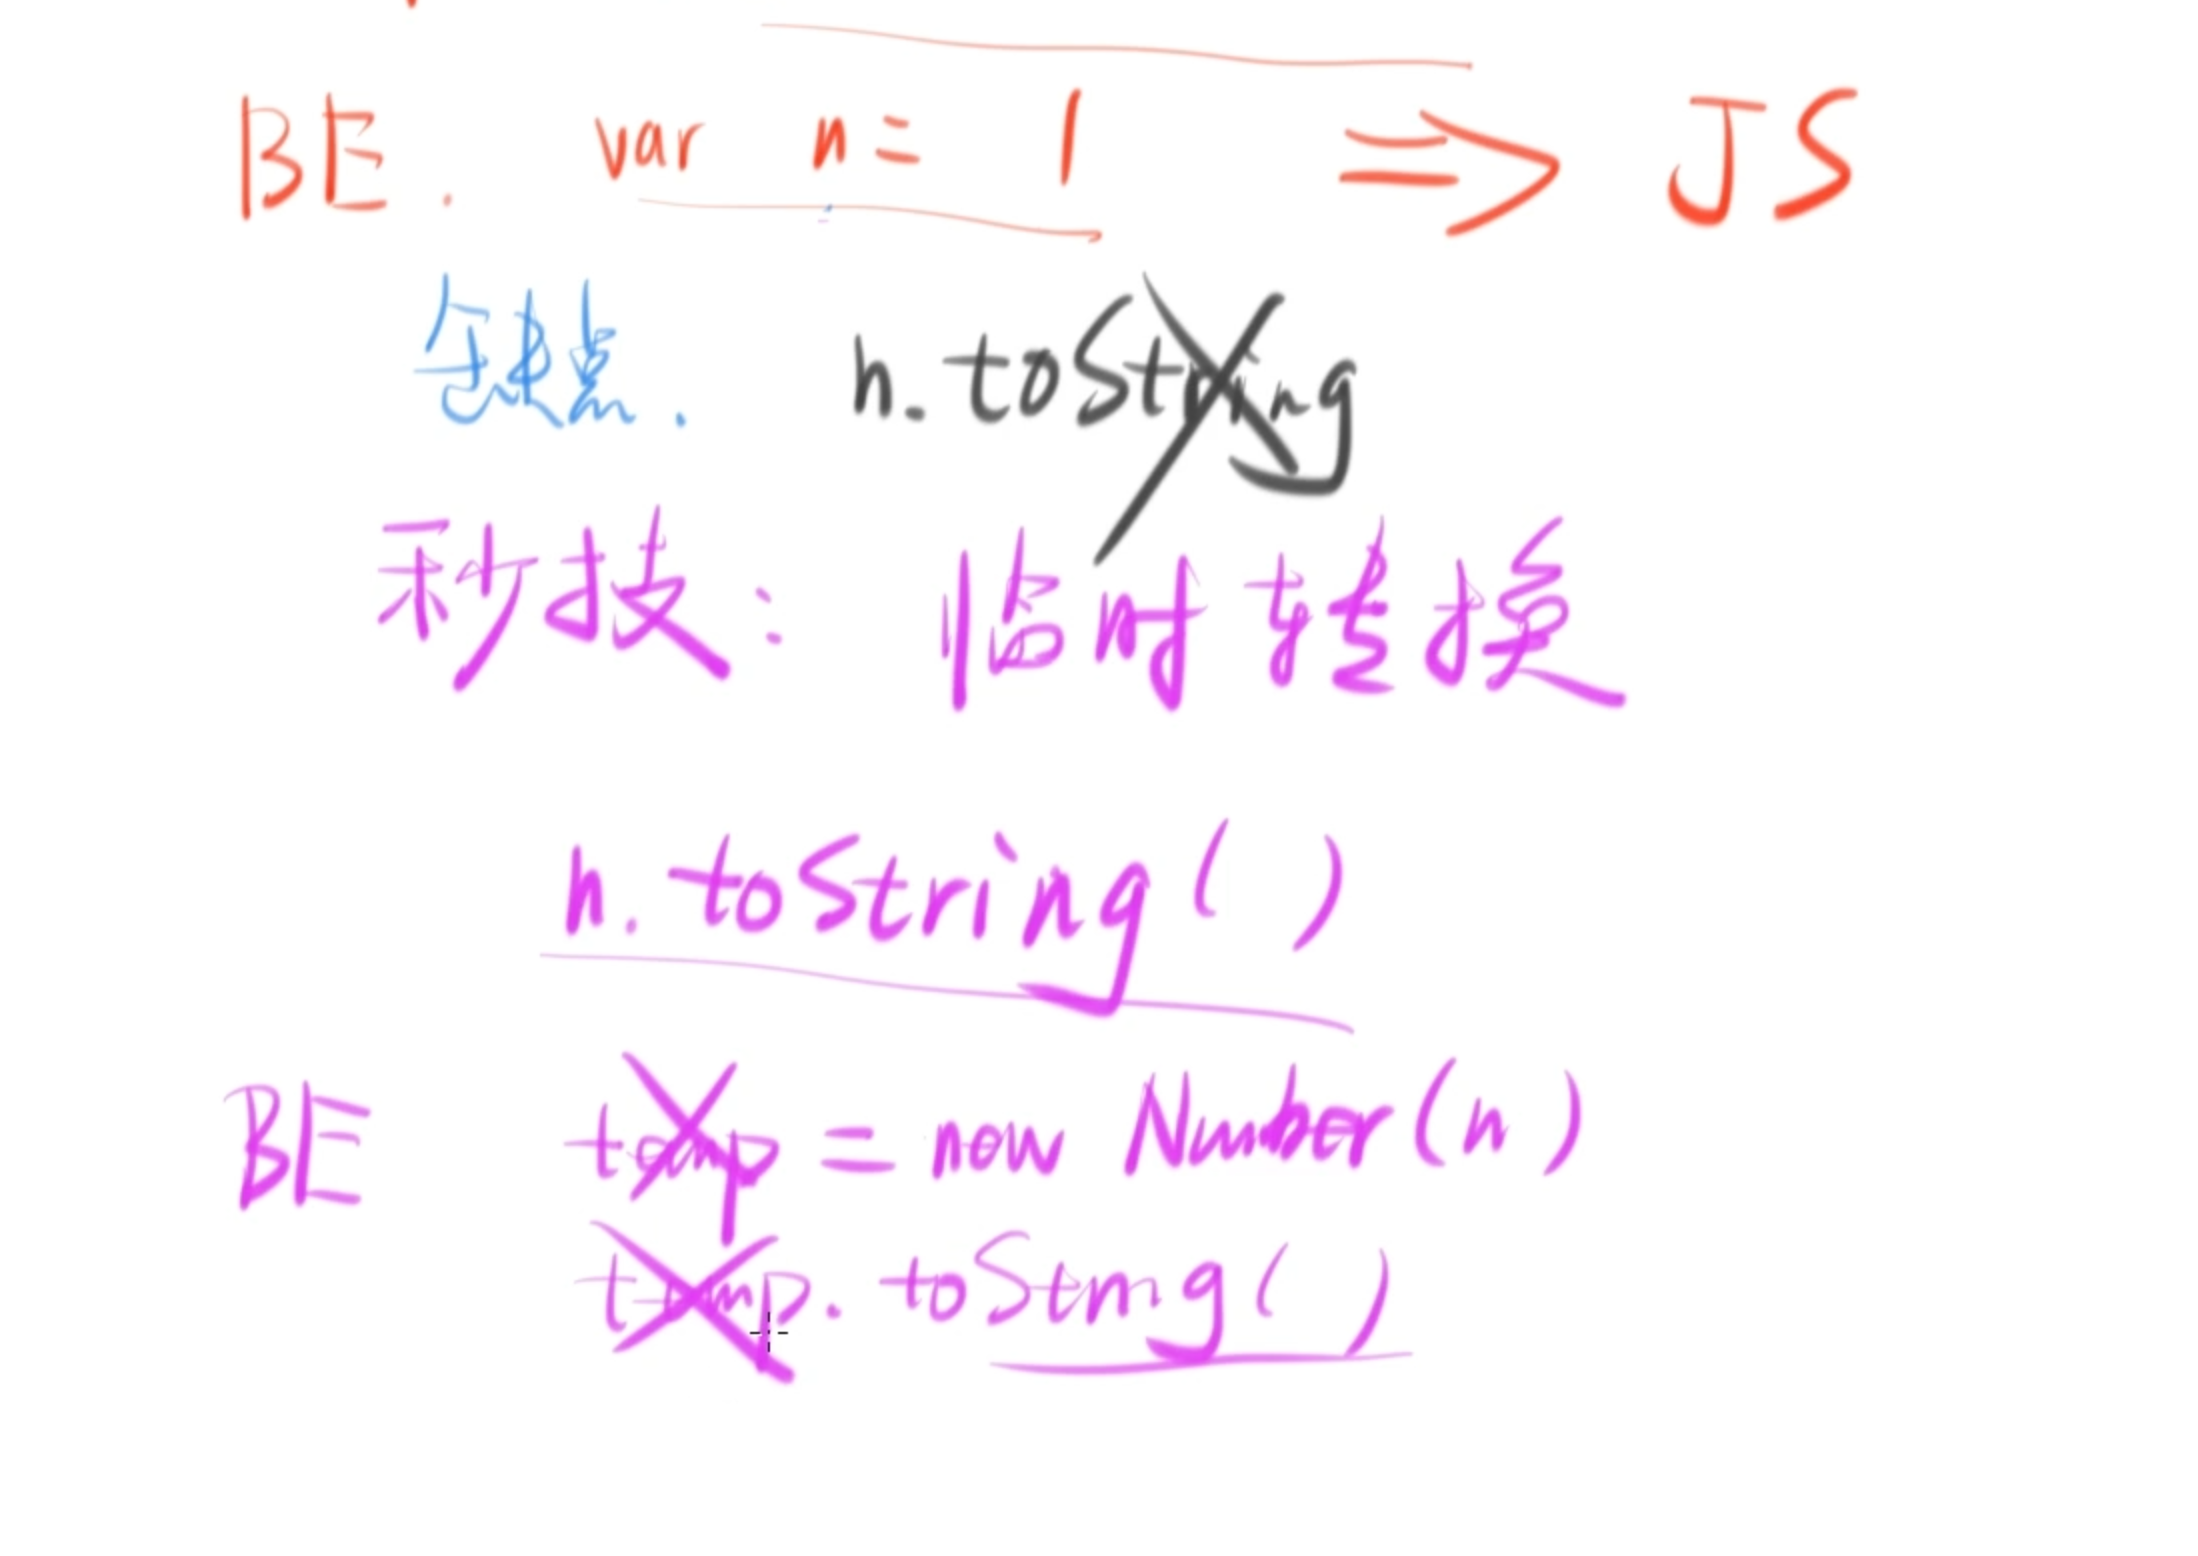 BE. var n = 1 => JS
缺点. n.toString
秒技: 临时转换
n.toString()
BE temp = new Number(n)
temp.toString()